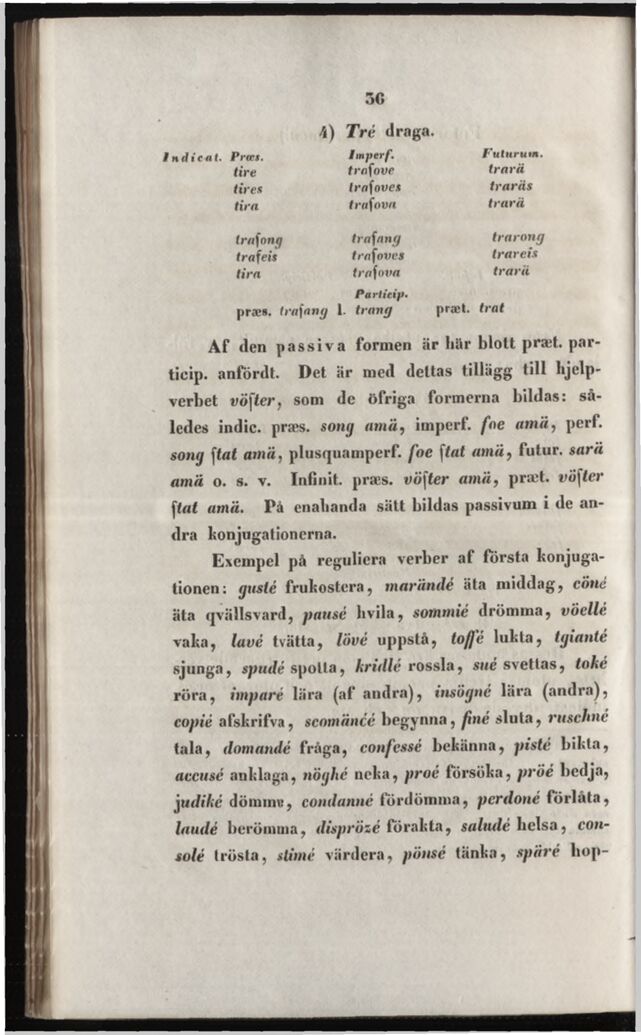 36
4) Tré draga.
Indicat. Præs. Imperf. Futurum.
tire traſove trarä
tires traſoves traräs
tira traſova trarä
traſong traſang trarong
traſeis traſoves trareis
tira traſova trarä
Particip.
præs. traſang l. trang præt. trat
Af den passiva formen är här blott præt. par-
ticip. anfördt. Det är med dettas tillägg till hjelp-
verbet vöſter, som de öfriga formerna bildas: så-
ledes indic. præs. song amä, imperf. foe amä, perf.
song ſtat amä, plusquamperf. foe ſtat amä, futur. sarä
amä o. s. v. Infinit. præs. vöſter amä, præt. vöſter
ſtat amä. På enahanda sätt bildas passivum i de an-
dra konjugationerna.
Exempel på reguliera verber af första konjuga-
tionen: gusté frukostera, marändé äta middag, cöné
äta qvällsvard, pausé hvila, sommié drömma, vöellé
vaka, lavé tvätta, lövé uppstå, toffé lukta, tgianté
sjunga, spudé spotta, kridlé rossla, sué svettas, toké
röra, imparé lära (af andra), insögné lära (andra),
copié afskrifva, scomäncé begynna, finé sluta, ruschné
tala, domandé fråga, confessé bekänna, pisté bikta,
accusé anklaga, nöghé neka, proé försöka, pröé bedja,
judiké dömme, condanné fördömma, perdoné förlåta,
laudé berömma, disprözé förakta, saludé helsa, con-
solé trösta, stimé värdera, pönsé tänka, späré hop-